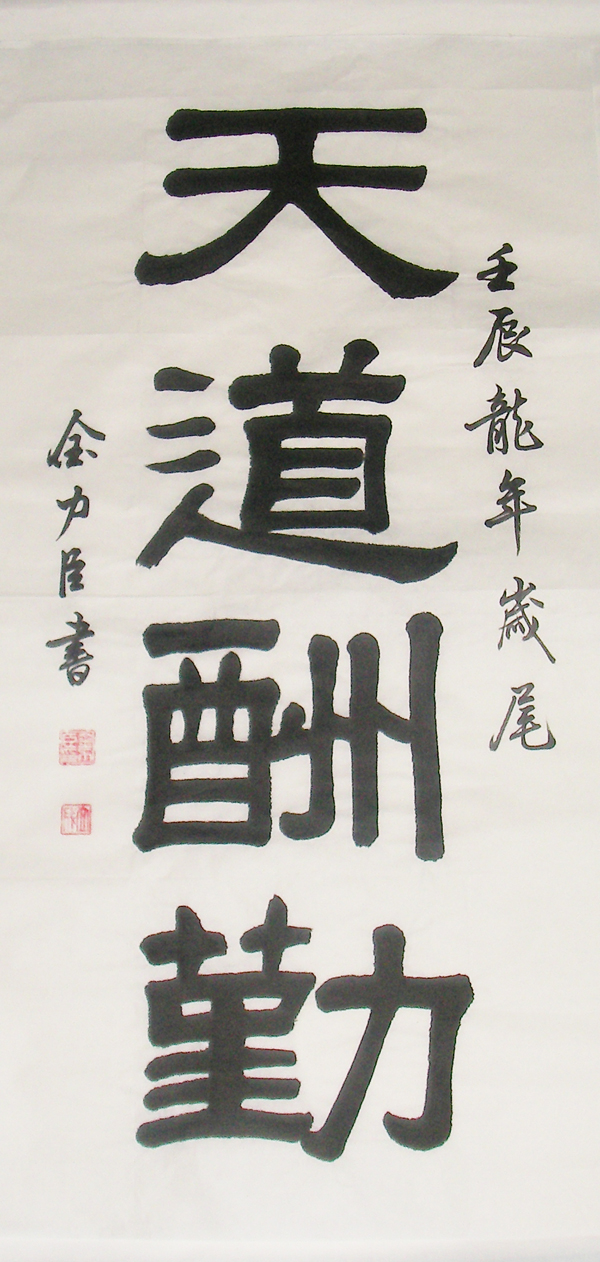 壬辰龍年歲尾
天道酬勤
金力臣書